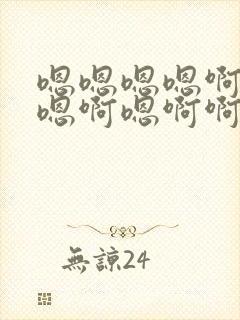 嗯嗯嗯嗯啊
嗯啊嗯啊啊
無諒24